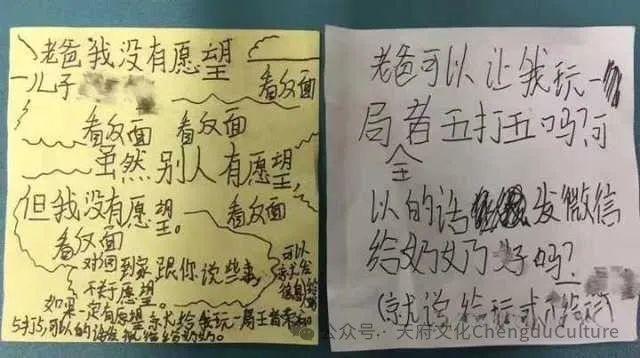 老爸我没有愿望
儿子
看反面
看反面 看反面
虽然别人有愿望,
但我没有愿望。
看反面
看反面
对,回到家跟你说些事,
不关于愿望。
可以
如果一定有愿望。
就给我玩一局王者
5打5,可以的话
给奶奶。
老爸可以让我玩一
局者五打五吗?可
全
以的话 发微信
给奶奶好吗?
(就说给玩或不给玩)
公众号· 天府文化ChengduCulture